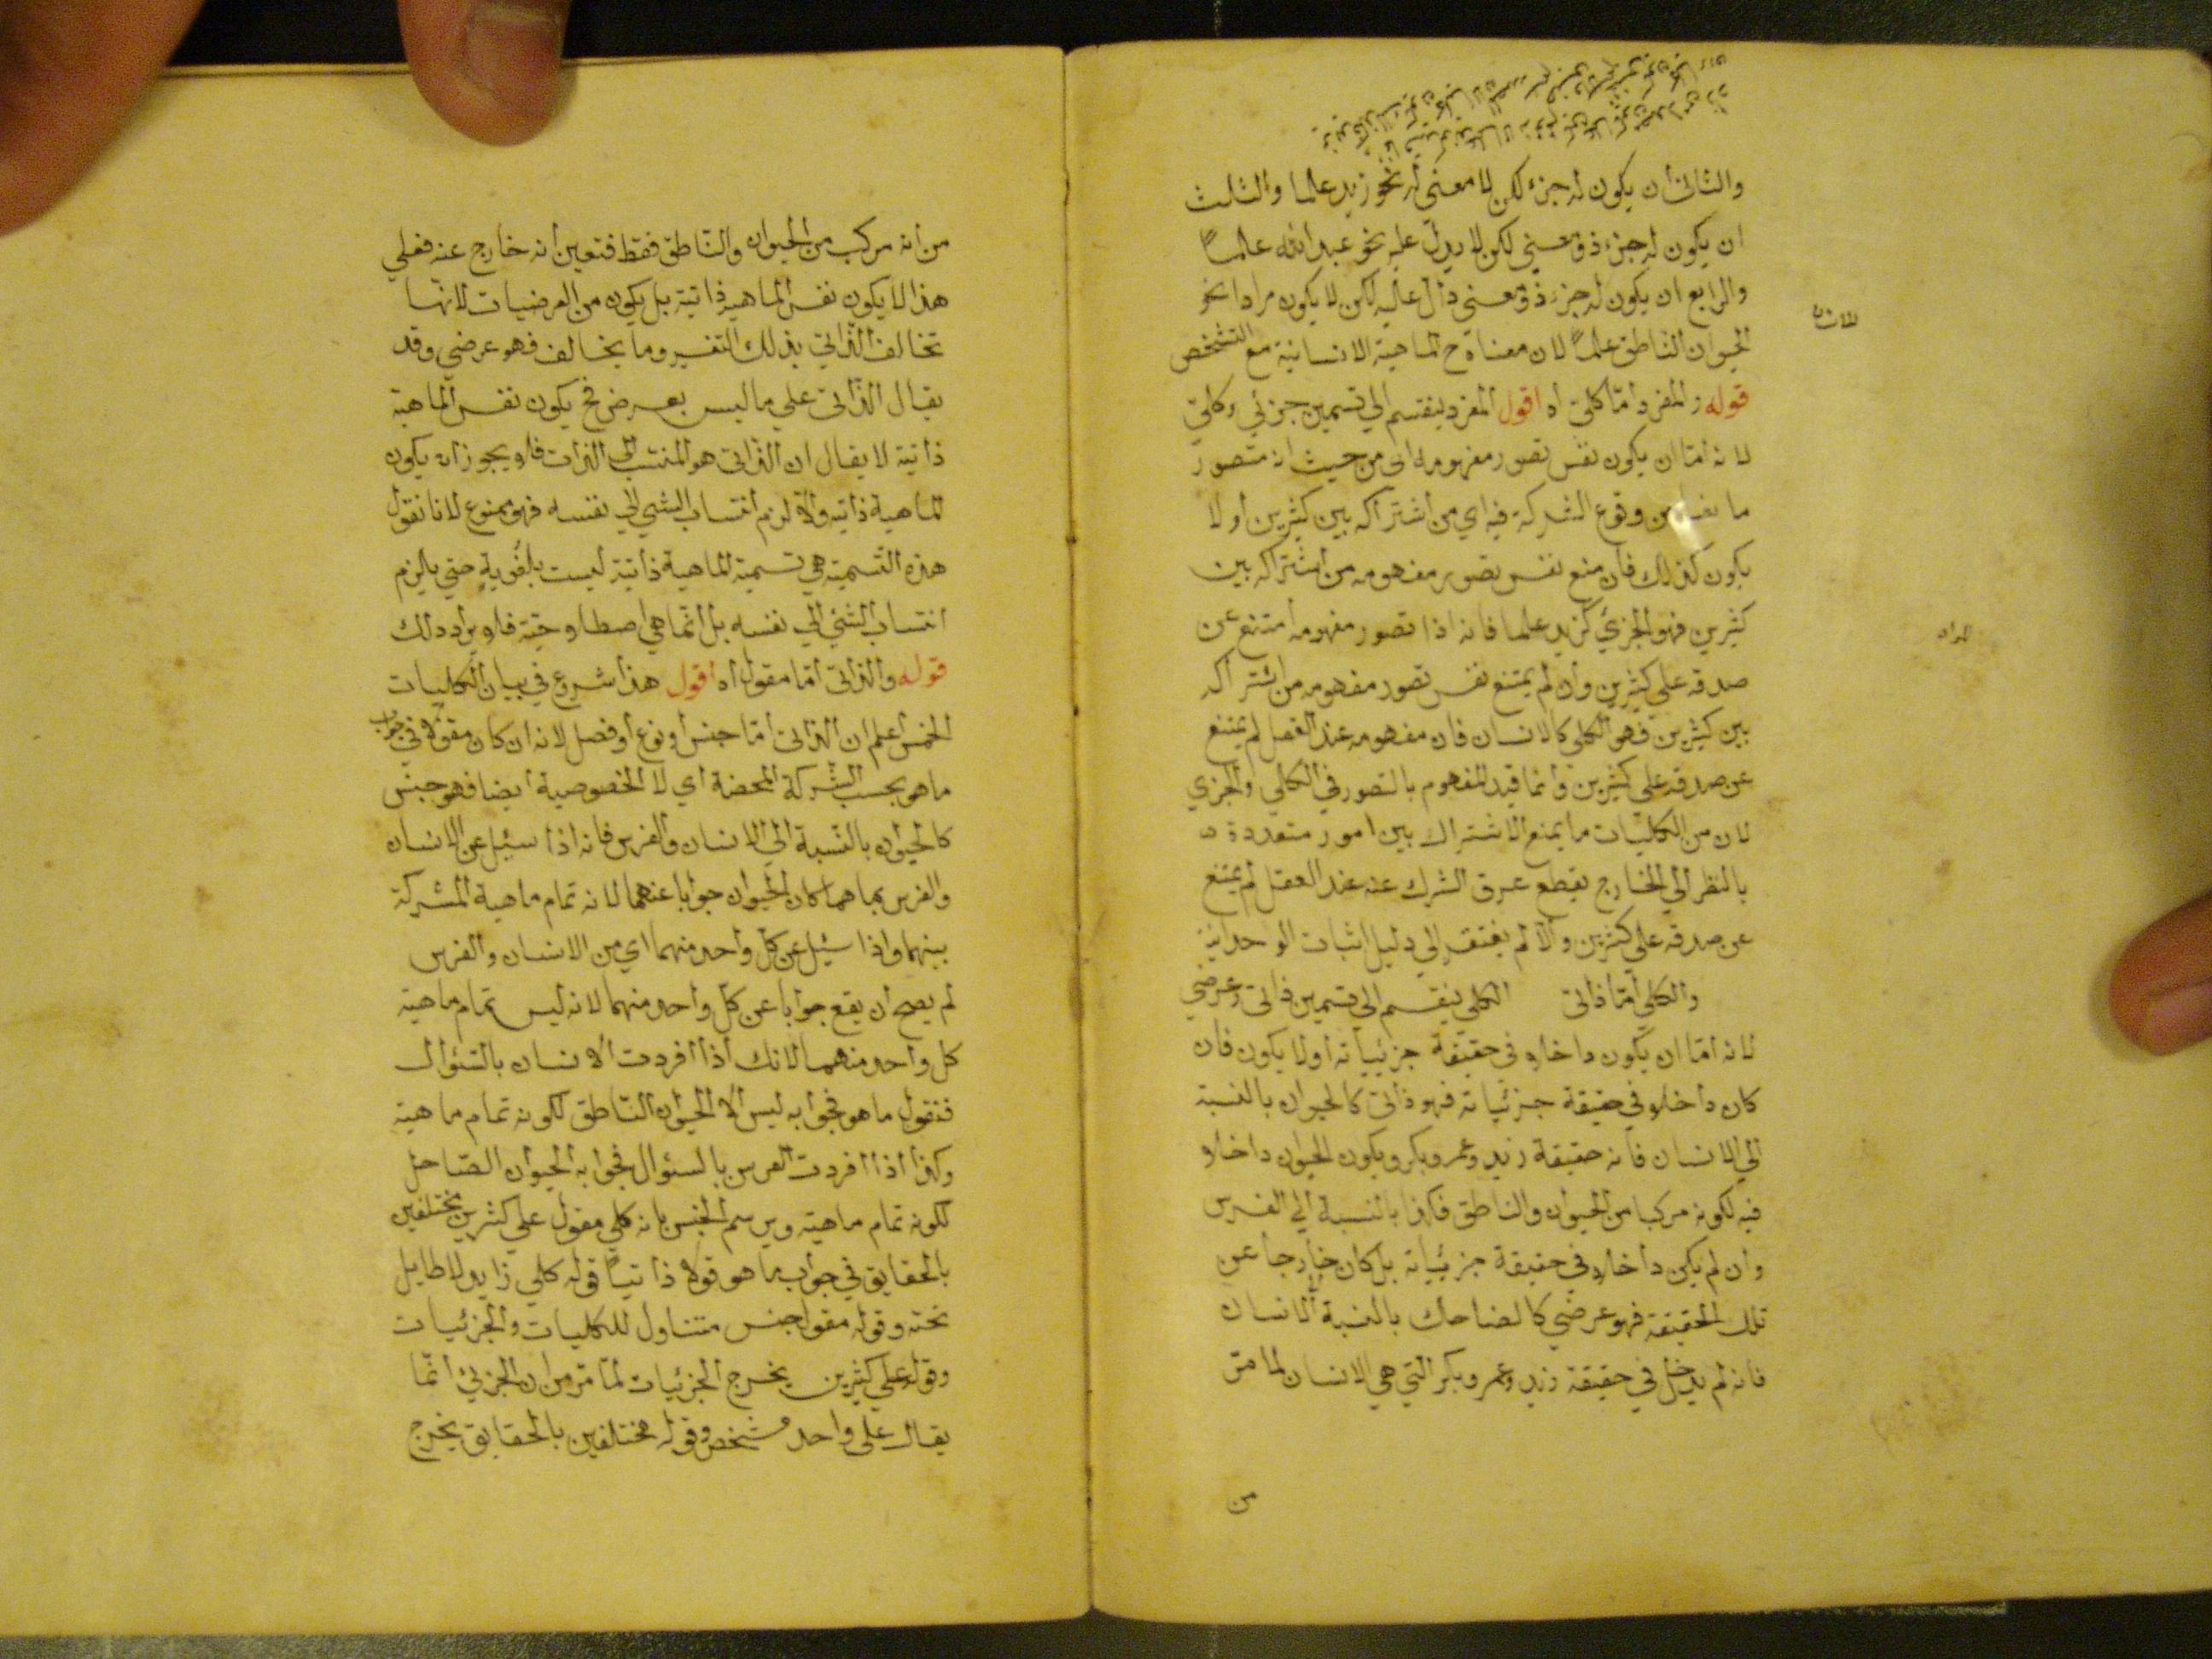 والثاني أن يكون له جزء لكن لا معنى له نحو زيد علما والثلث
ان يكون له جزء ذو معنى لكن لا يدل عليه نحو عبد الله علماً
والرابع ان يكون له جزء ذو معنى دال عليه لكن لا يكون مرادا نحو
الحيوان الناطق علماً لان معناه ح الماهية الانسانية مع التشخص
قوله والمفرد امّا كلي اه اقول المفرد ينقسم الي قسمين جزئي وكلي
لانه امّا ان يكون نفس تصور مفهومه اي من حيث انه متصور
من وقوع الشركة فيه اي من اشتراكه بين كثيرين أو لا
يكون كذلك فان منع نفس تصور مفهومه من اشتراكه بين
كثيرين فهو الجزئي كزيد علما فانه اذا تصور مفهومه امتنع عن
صدقه علي كثيرين وان لم يمتنع نفس تصور مفهومه من اشتراكه
بين كثيرين فهو الكلي كالانسان فان مفهومه عند العقل لم يمتنع
عن صدقه علي كثيرين وانما قيد المفهوم بالتصور في الكلي والجزي
لان من الكليات ما يمنع الاشتراك بين امور متعددة
بالنظر الي الخارج يقطع عرق الشرك عنه عند العقل لم يمتنع
عن صدقه علي كثيرين والا لم يفتقر الي دليل اثبات الوحدانية
والكلي امّا ذاتي الكلي ينقسم الي قسمين ذاتي وعرضي
لانه امّا ان يكون داخلا في حقيقة جزئياته أو لا يكون فان
كان داخلا في حقيقة جزئياته فهو ذاتي كالحيوان بالنسبة
الي الانسان فانه حقيقة زيد وعمرو وبكر ويكون الحيوان داخلا
فيه لكونه مركبا من الحيوان والناطق فكذا بالنسبة الي الفرس
وان لم يكن داخلا في حقيقة جزئياته بل كان خارجا عن
تلك الحقيقة فهو عرضي كالضاحك بالنسبة الي الانسان
فانه لم يدخل في حقيقة زيد وعمرو وبكر التي هي الانسان لما مرّ
من
من أنه مركب من الحيوان والناطق فقط فتعين أنه خارج عنه فعلي
هذا لا يكون نفس الماهية ذاتية بل يكون من العرضيات لانها
تخالف الذاتي بذلك التفسير وما يخالف فهو عرضي وقد
يقال الذاتي علي ما ليس بعرض فح يكون نفس الماهية
ذاتية لا يقال ان الذاتي هو المنتسب الي الذات فلا يجوز ان يكون
الماهية ذاتيه والا لزم انتساب الشيء الي نفسه فهو ممنوع لانا نقول
هذه التسمية هي تسمية الماهية ذاتية ليست بلغوية حتي يلزم
انتساب الشئ الي نفسه بل انما هي اصطلاحية فلا يراد ذلك
قوله والذاتي امّا مقول اه اقول هذا شروع في بيان الكليات
الخمس اعلم ان الذاتي امّا جنس أو نوع أو فصل لانه ان كان مقولا في جواب
ما هو بحسب الشركة المحضة أي لا الخصوصية أيضا فهو جنس
كالحيوان بالنسبة الي الانسان والفرس فانه اذا سئل عن الانسان
والفرس بما هما كان الحيوان جوابا عنهما لانه تمام ماهية المشتركة
بينهما واذا سئل عن كل واحد منهما اي من الانسان والفرس
لم يصح أن يقع جوابا عن كل واحد منهما لانه ليس تمام ماهية
كل واحد منهما لانك اذا افردت الانسان بالسؤال
فتقول ما هو فجوابه ليس الا الحيوان الناطق لكونه تمام ماهية
وكذا اذا افردت الفرس بالسئوال فجوابه الحيوان الصاهل
لكونه تمام ماهيته ويرسم الجنس بانه كلي مقول علي كثيرين مختلفين
بالحقايق في جواب ما هو قولا ذاتياً قوله كلي زايد لا طايل
تحته وقوله مقول جنس متناول للكليات والجزئيات
وقوله علي كثيرين يخرج الجزئيات لما مرّ من ان الجزئي انما
يقال علي واحد مشخص وقوله مختلفين بالحقايق يخرج